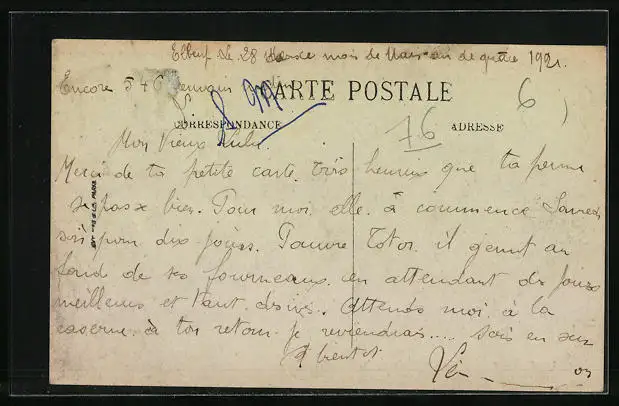 Elbeuf le 28 mois de Mars an de grâce 1921.
Encore 546
CARTE POSTALE
6
CORRESPONDANCE
76
ADRESSE
Mon Vieux Lulu
Merci de ta petite carte. Très heureux que ta perme
se passe bien. Pour moi elle a commencé Samedi
soir pour dix jours. Pauvre Totor il gémit au
fond de ses fourneaux en attendant des jours
meilleurs et tant désirés. Attends moi à la
caserne à ton retour je reviendrai .... sois en sûr
A bientôt